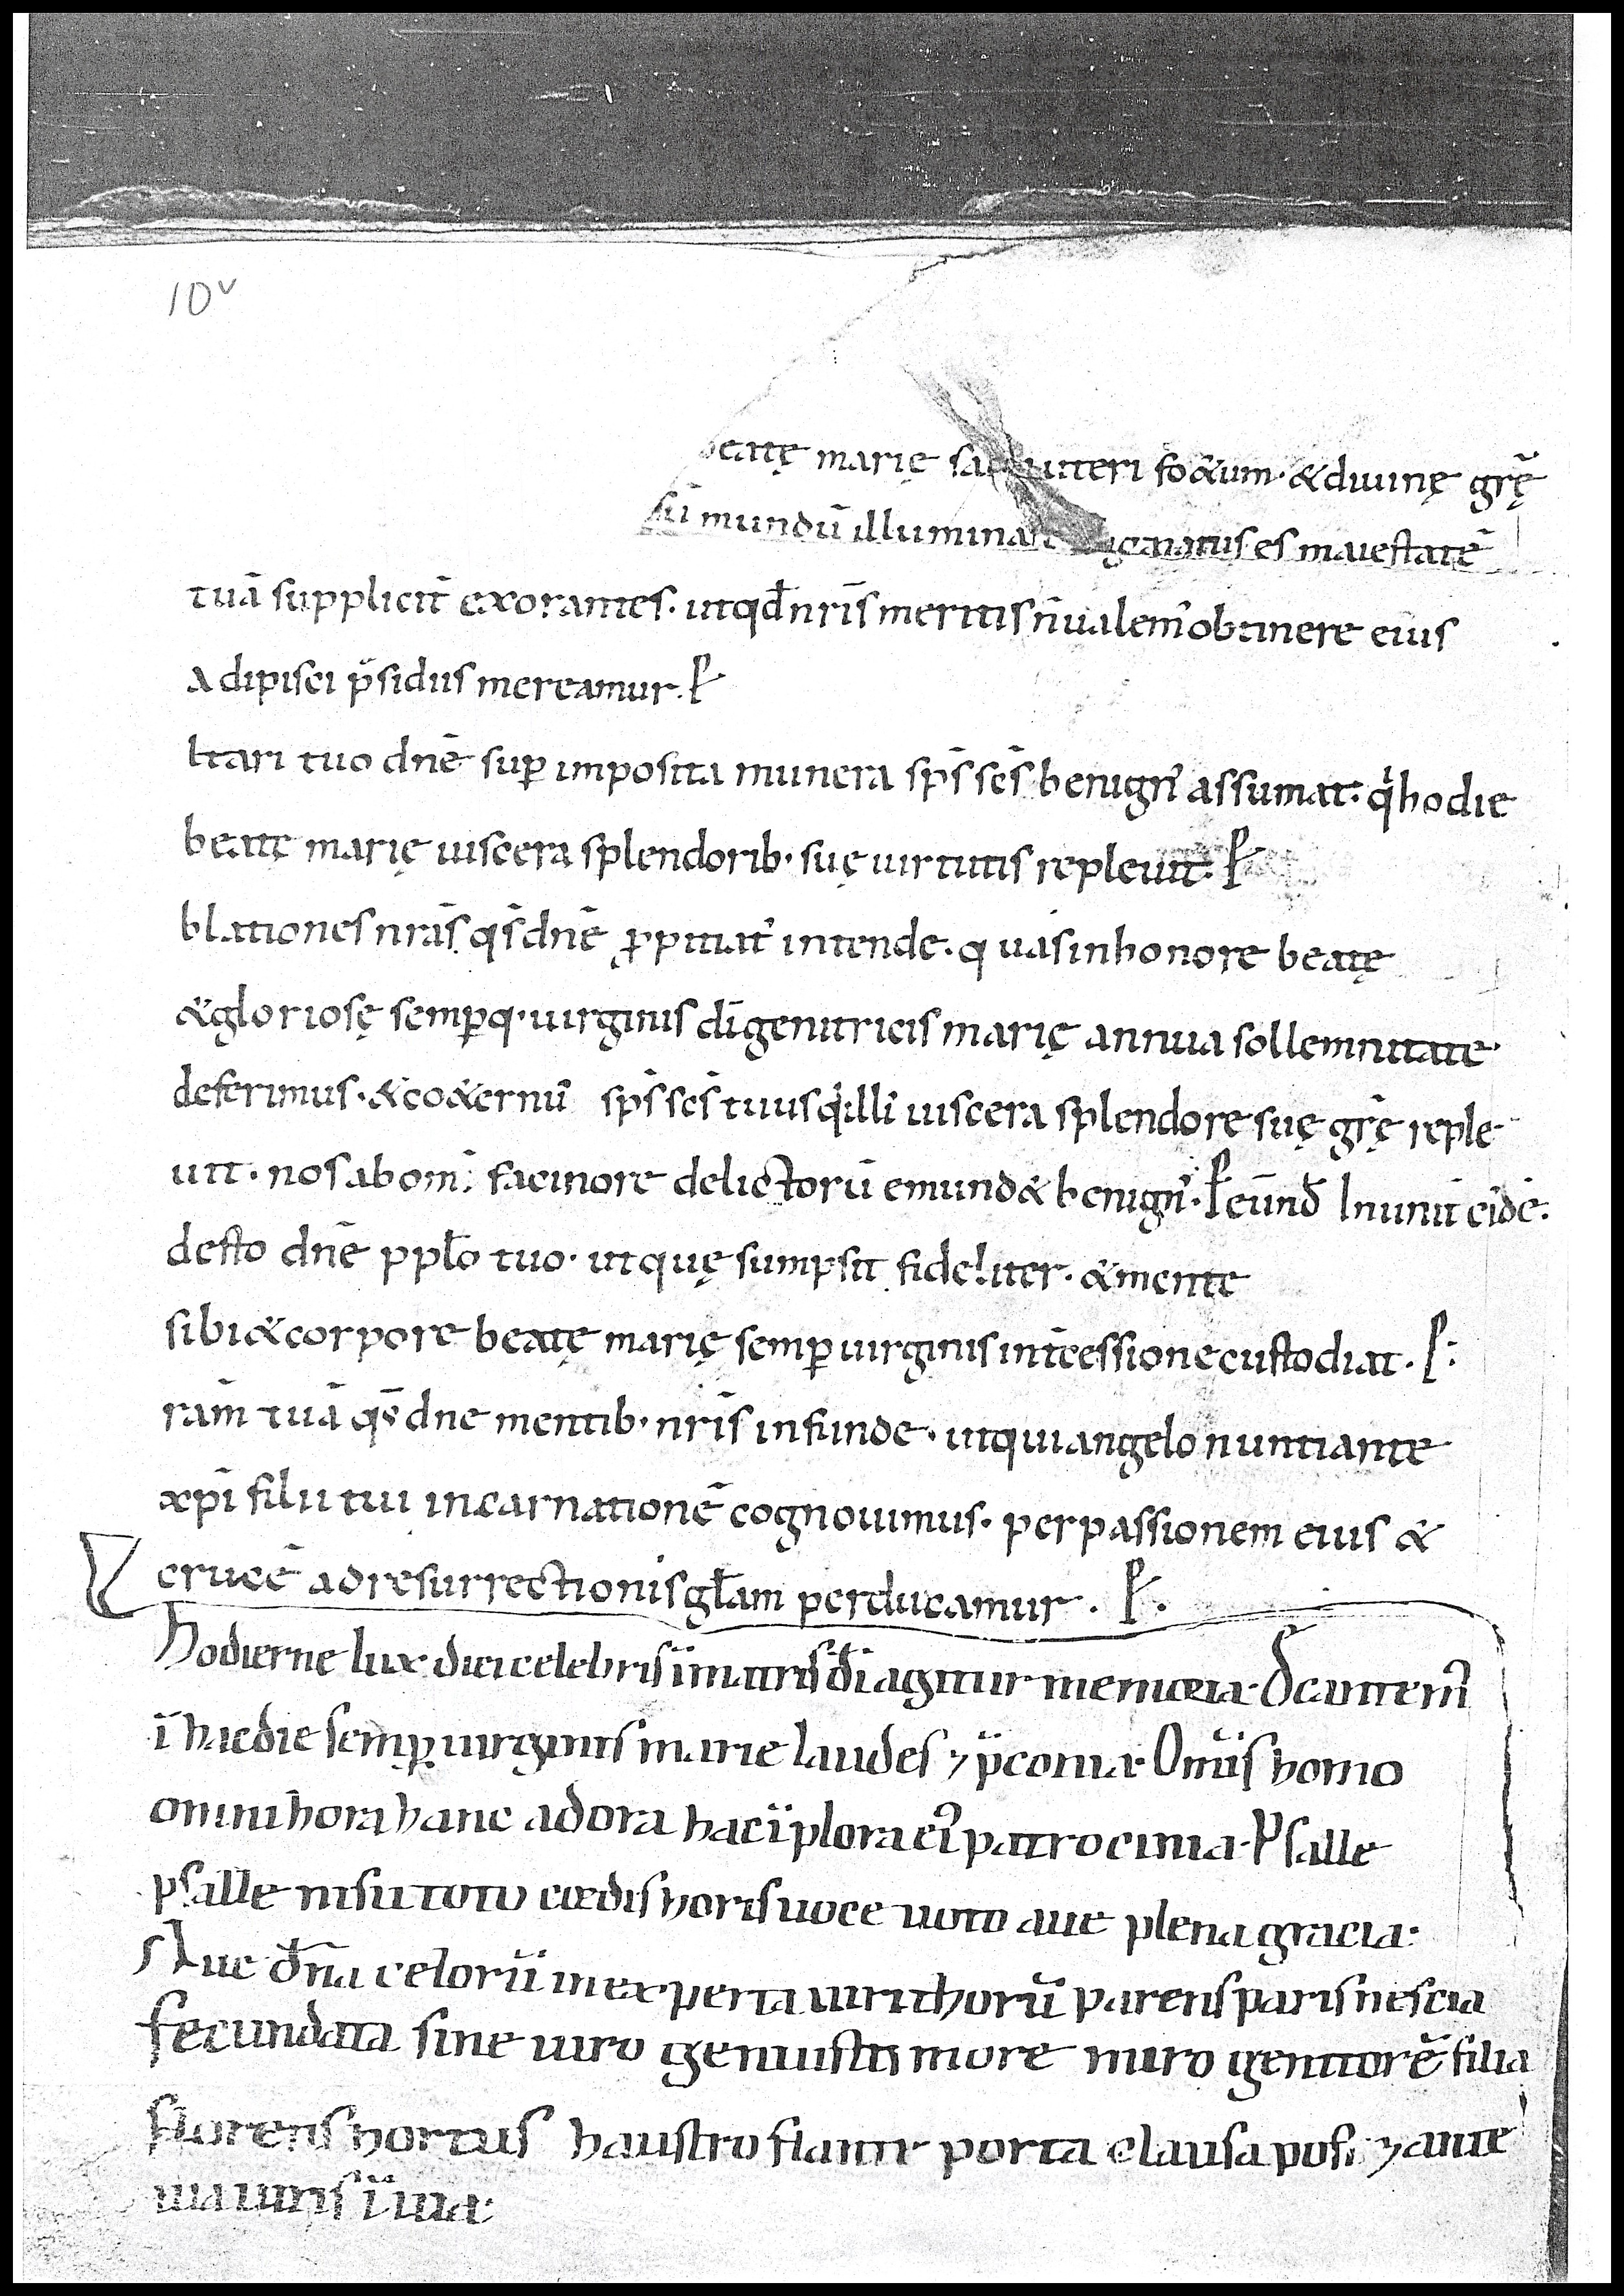 10v
beatę marię sac uteri foetum· & diuinę grę̄
sū mundū illuminare dignatus es maiestatē
tuā supplicit̄ exorantes· ut qđ nr̄is meritis n̄ ualemꝰ obtinere eius
adipisci p̄sidiis mereamur. P
ltari tuo dnē sup̱ imposita munera sp̄s sc̄s benignꝰ assumat· qͥ hodie
beatę marię uiscera splendorib· suę uirtutis repleuit· P
blationes nr̄as qs̄ dnē ꝓpitiatꝰ intende· quas in honore beatę
& gloriosę semp̱q· uirginis dī genitricis marię annua sollemnitate·
deferimus· & co&ernꝰ sp̄s sc̄s tuus qͥ illiꝰ uiscera splendore suę grę̄ reple
uit· nos ab om̄i facinore delictorū emund& benignꝰ· P eūnđ
desto dnē pplo̅ tuo· ut quę sumpsit fideliter· & mente
sibi & corpore beatę marię semp̱ uirginis int̄cessione custodiat· P·
ram̄ tuā qs̄ dne mentib· nr̄is infunde· ut qui angelo nuntiante
xp̄i filii tui incarnationē cognouimus· per passionem eius &
crucē ad resurrectionis gl̄am perducamur· P·
Hodierne lux diei celebris ī matris đi agitur memoria· Decantemꝰ
ī hac die semp̱ uirginis marie laudes ⁊ p̄conia· Omīs homo
omni hora hanc adora hac īplora eiꝰ patrocinia· Psalle
psalle nisu toto cordis horis uoce uoto aue plena gracia·
Aue đn̄a celorū inexperta uiri thorū parens paris nescia
fecundata sine uiro genuisti more miro genitorē filia
florens hortus haustro flante porta clausa post ⁊ ante
uia uiris īuia·